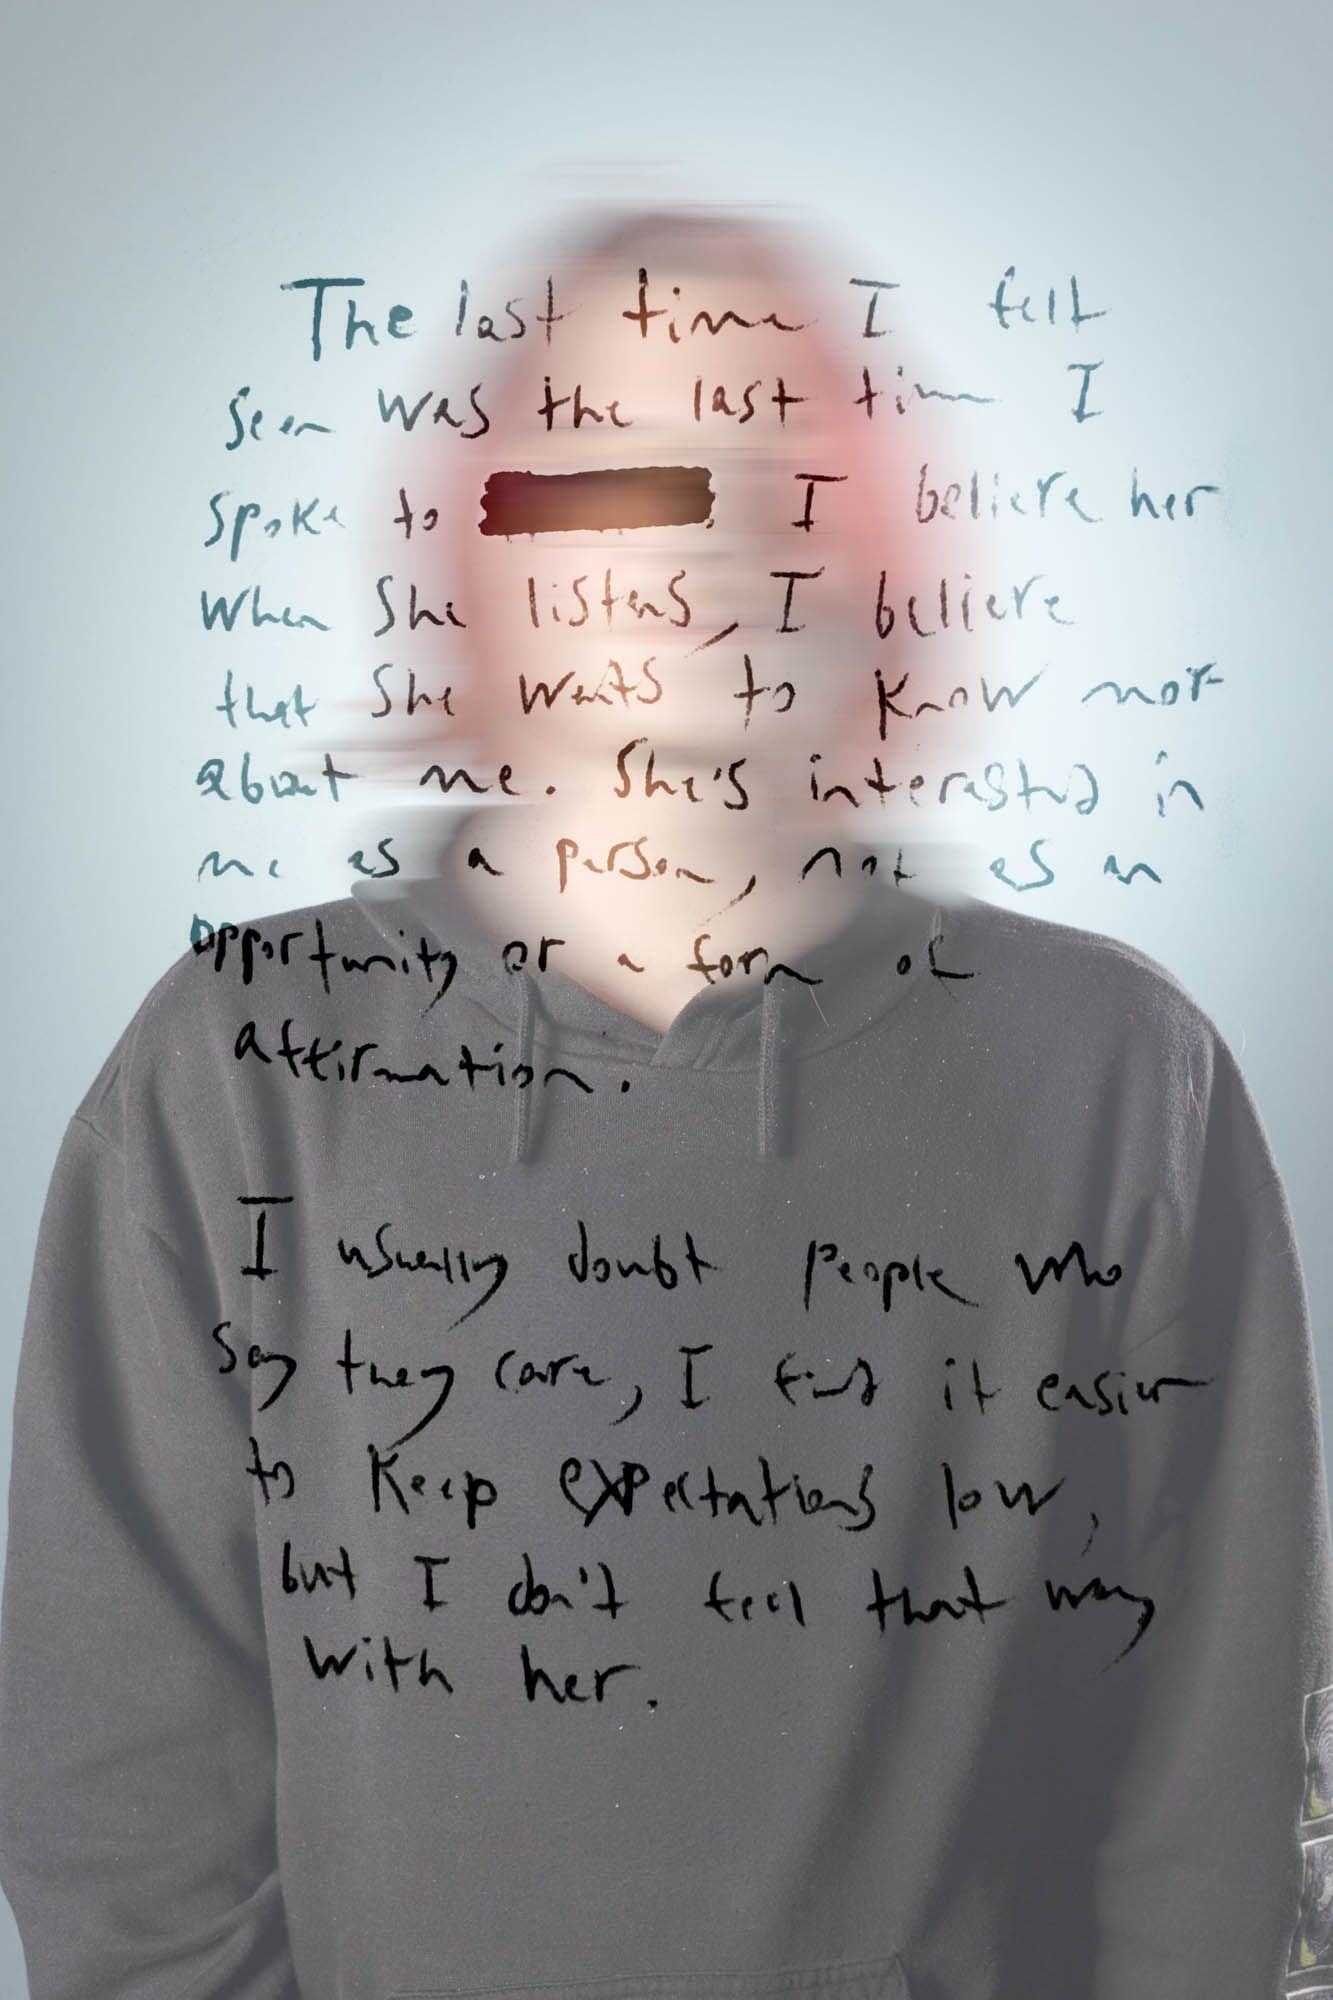 The last time I felt
seen was the last time I
spoke to . I believe her
when she listens, I believe
that she wants to know mor
about me. She's interested in
me as a person, not as an
opportunity or a form of
affirmation.
I usually doubt people who
say they care, I find it easier
to keep expectations low,
but I don't feel that way
with her.